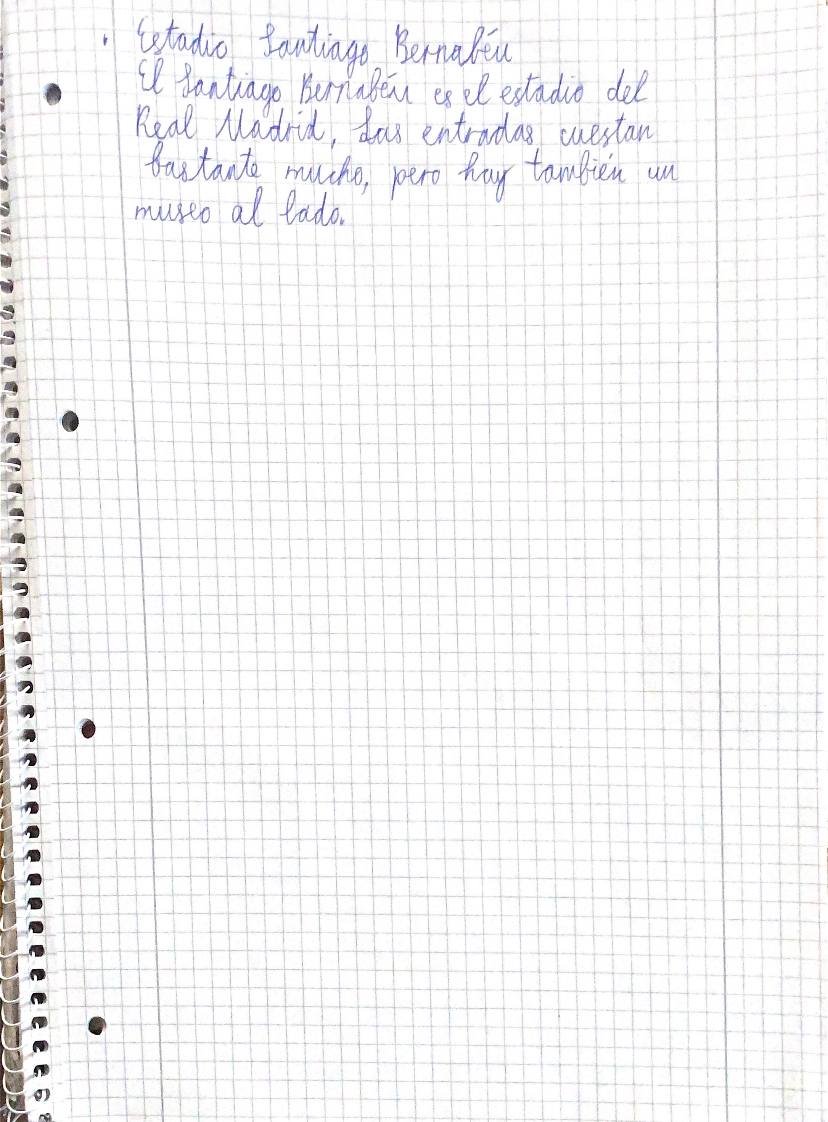 • Estadio Santiago Bernabéu
El Santiago Bernabéu es el estadio del
Real Madrid, Las entradas cuestan
bastante mucho, pero hay también un
museo al lado.